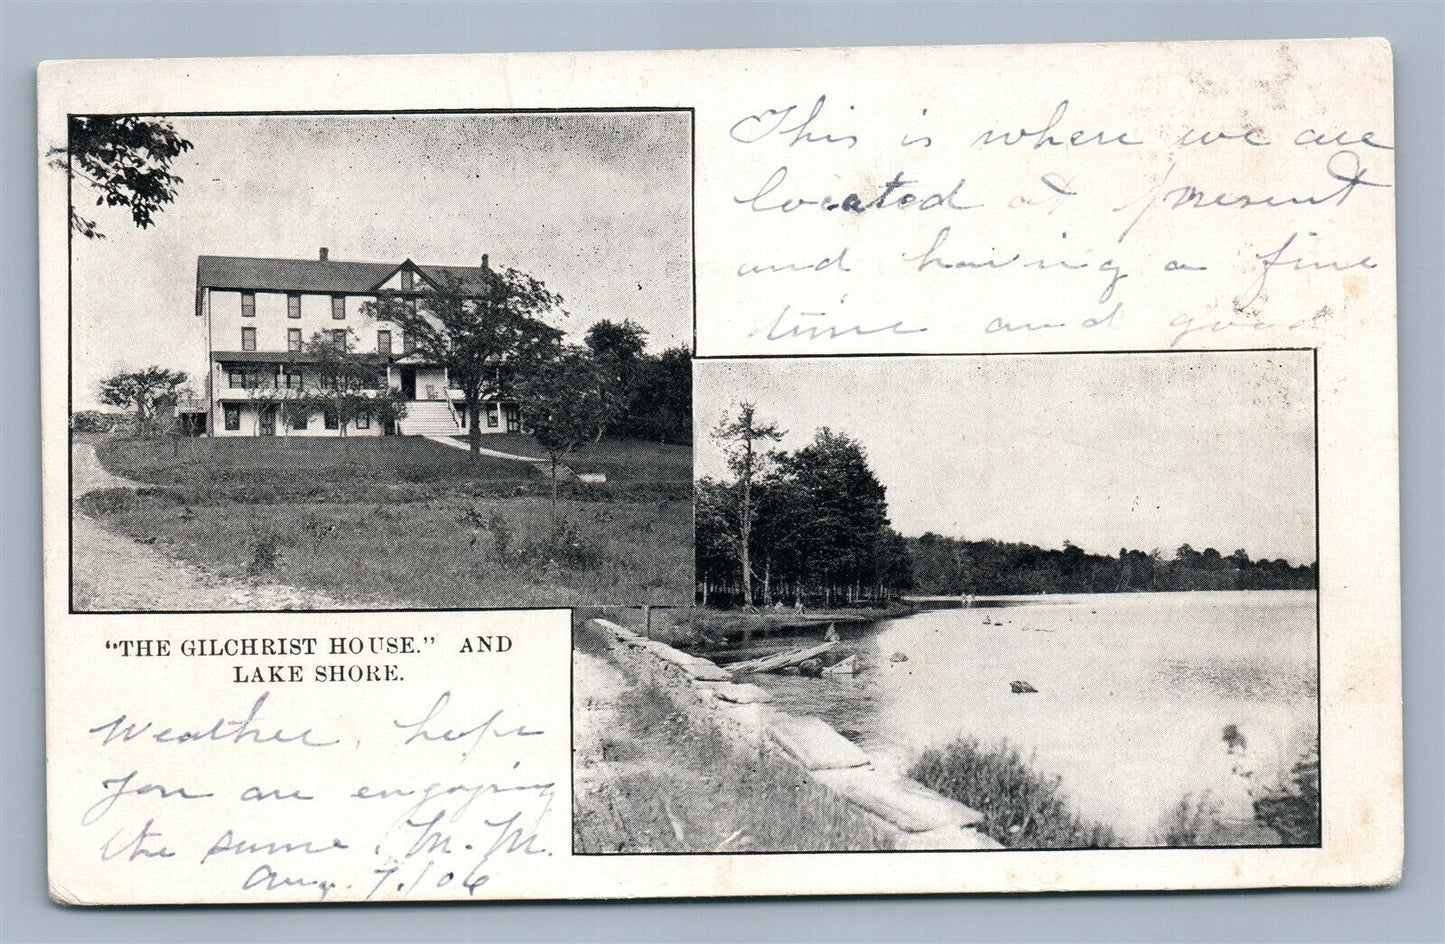 This is where we are
located at present
and having a fine
time and good
"THE GILCHRIST HOUSE." AND
LAKE SHORE.
Weather, hope
you are enjoying
the same. M. M.
Aug. 7. / 06